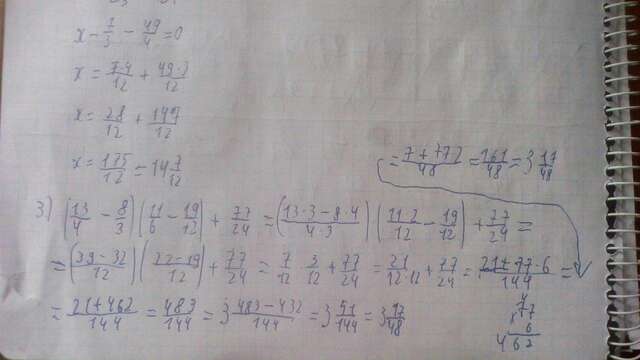 x - 7/3 - 49/4 = 0
x = 7·4/12 + 49·3/12
x = 28/12 + 147/12
x = 175/12 = 14 7/12
= 7+77·2/48 = 161/48 = 3 17/48
3) (13/4 - 8/3) (11/6 - 19/12) + 77/24 = (13·3-8·4/4·3) (11·2/12 - 19/12) + 77/24 =
= (39-32/12) (22-19/12) + 77/24 = 7/12 · 3/12 + 77/24 = 21/12·12 + 77/24 = 21+77·6/144 =
= 21+462/144 = 483/144 = 3 483-432/144 = 3 51/144 = 3 17/48
4
77
× 6
462